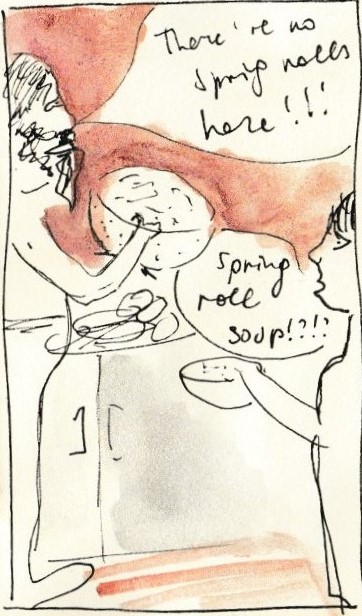 There're no
spring rolls
here!!!
Spring
roll
soup!?!?